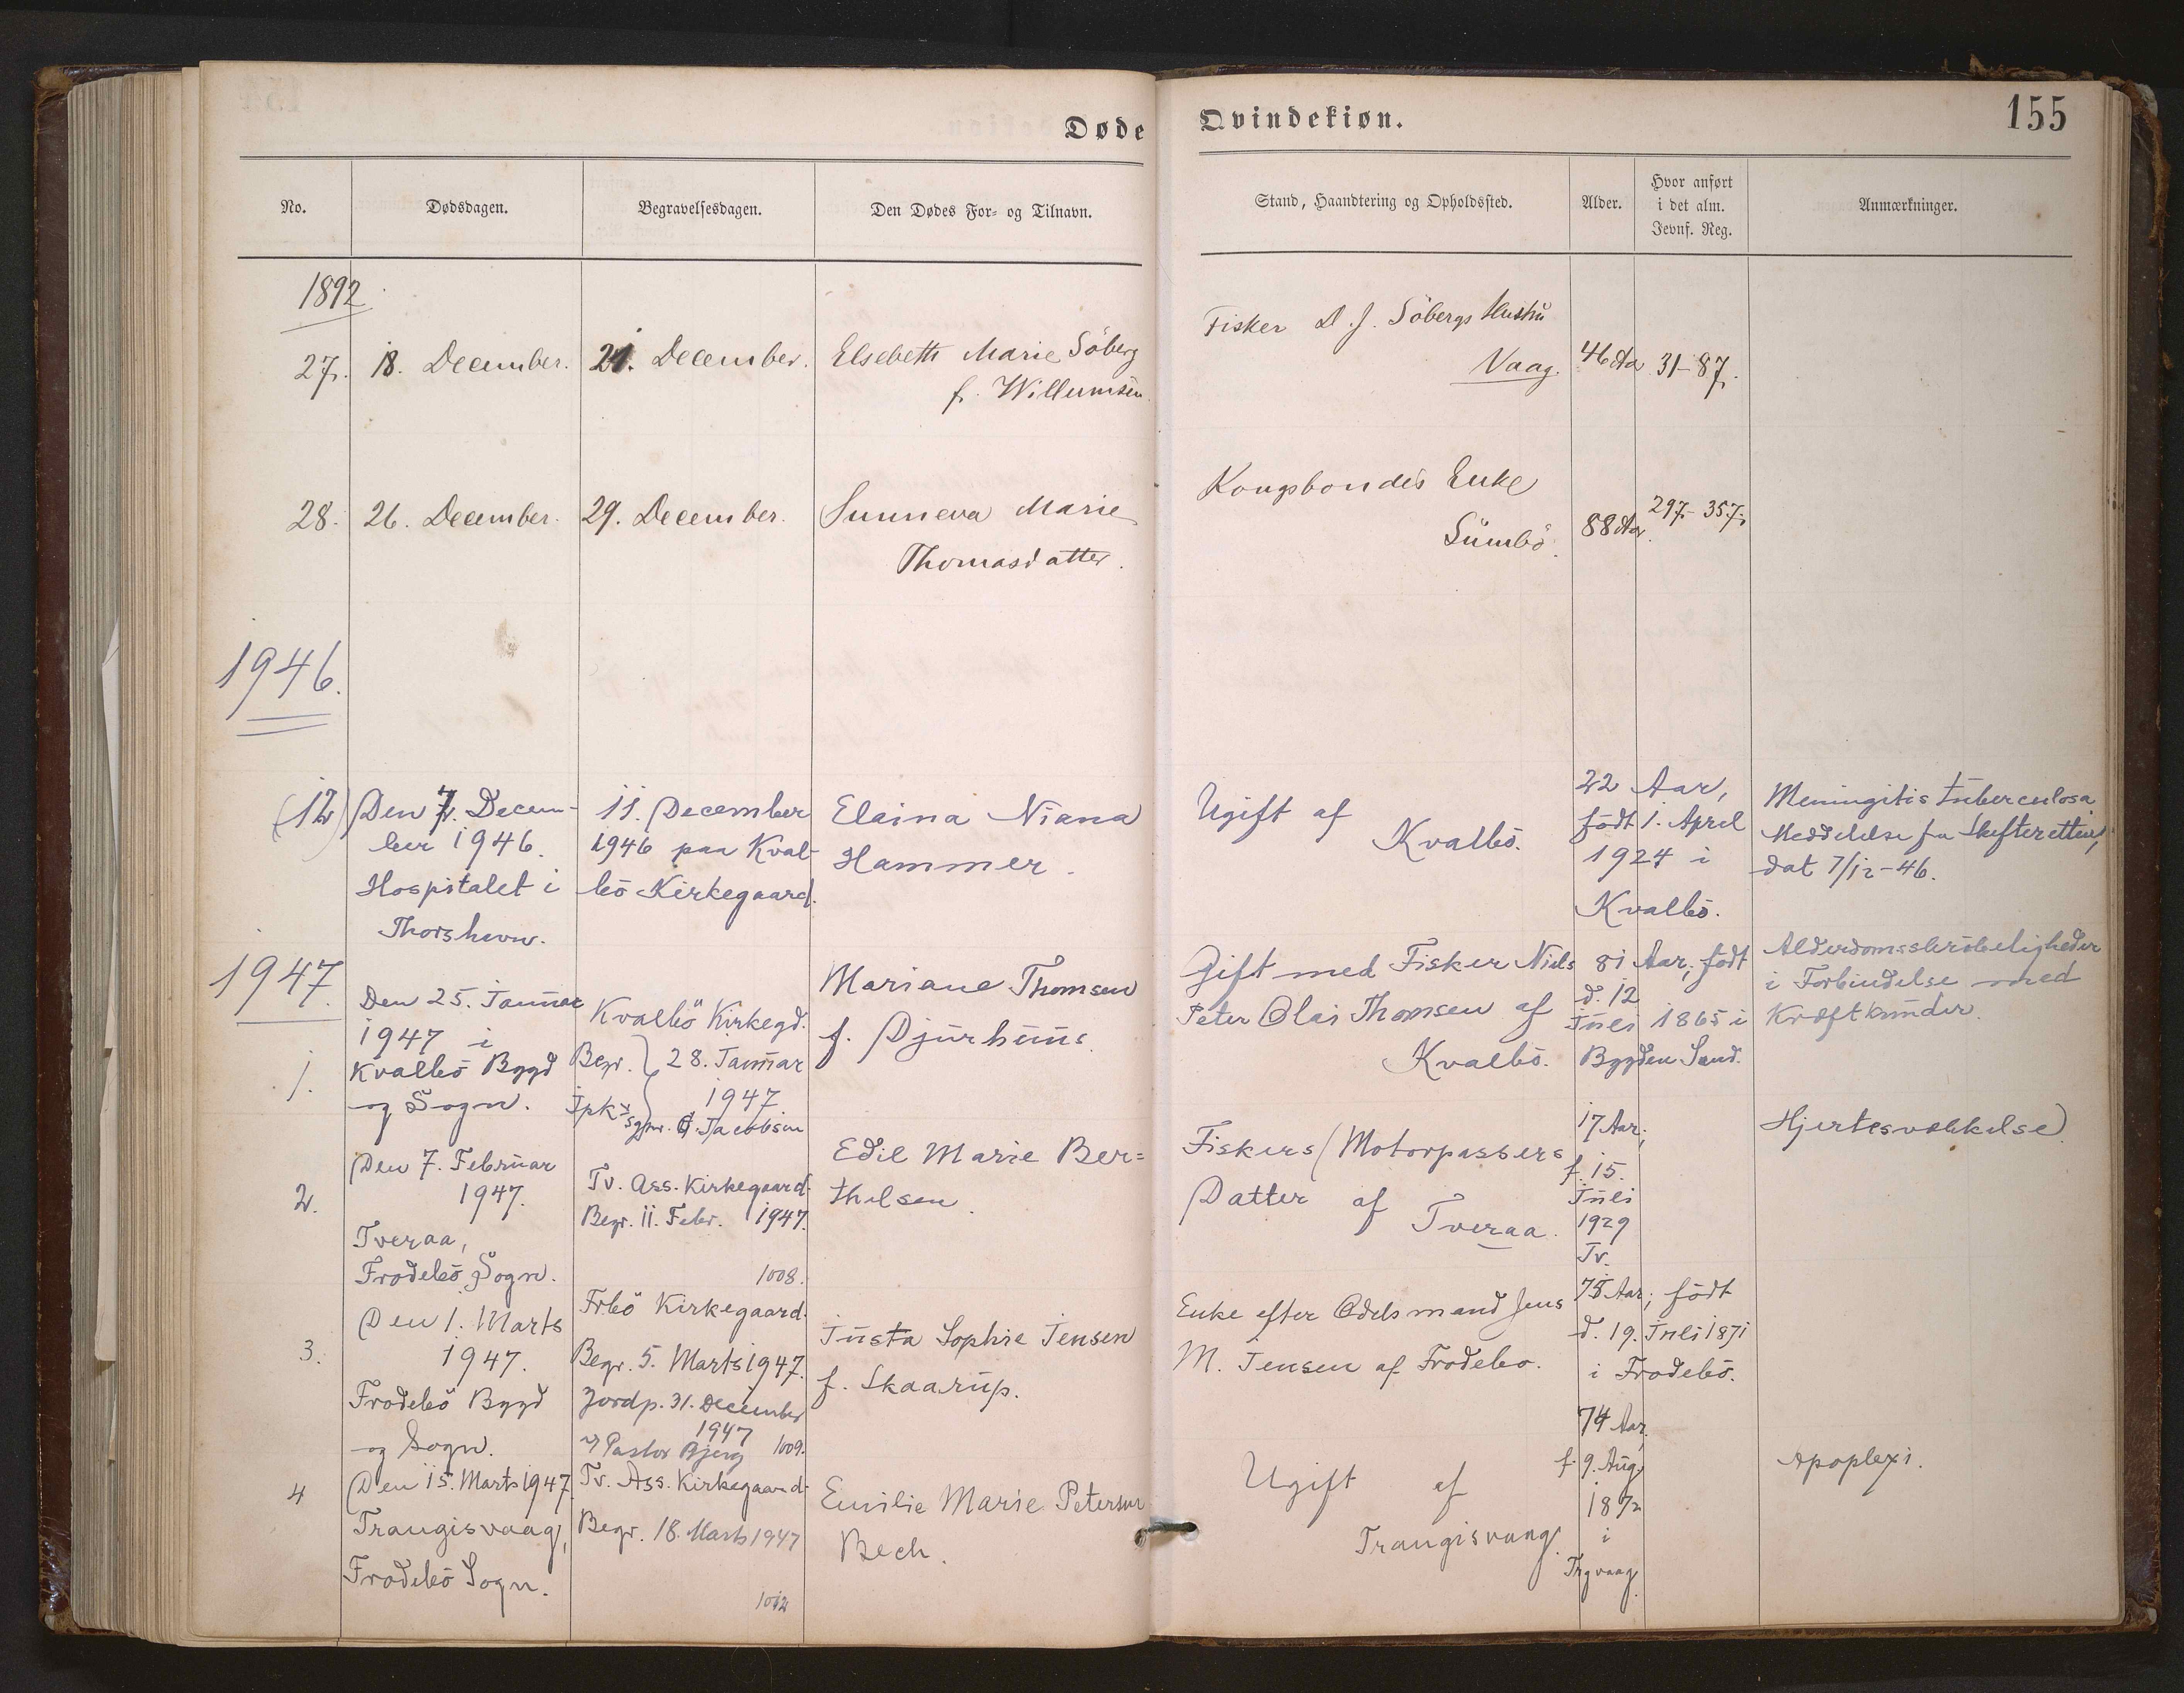 Døde
Qvindekiøn.
155
No.
Dødsdagen.
Begravelsesdagen.
Den Dødes For- og Tilnavn.
Stand, Haandtering og Opholdssted.
Alder.
Hvor anført
i det alm.
Jevnf. Reg.
Anmærkninger.
1892
27.
18. December.
21. December.
Elsebeth Marie Söberg
f. Willumsen
Fisker D. J. Söbergs Hustru
Vaag.
46 Aar
31-87.
28.
26. December.
29. December.
Sunneva Marie
Thomasdatter.
Kongsbondes Enke
Sumbö.
88 Aar.
297-357.
1946.
(12)
Den 7. Decem-
ber 1946.
Hospitalet i
Thorshavn.
11. December
1946 paa Kval-
bö Kirkegaard.
Elaina Niana
Hammer.
Ugift af
Kvalbö.
22 Aar,
født 1. April
1924 i
Kvalbö.
Meningitis tuberculosa
Meddelelse fra Skifteretten,
dat 7/12-46.
1947.
1.
Den 25. Januar
1947 i
Kvalbö Bygd
og Sogn.
Kvalbö Kirkegd.
Begr. } 28. Januar
1947
Jpk. v Sgpr. Jacobsen
Mariane Thomsen
f. Djurhuus.
Gift med Fisker Niels
Peter Olai Thomsen af
Kvalbö.
81 Aar; født
d. 12
Juli 1865 i
Bygden Sand.
Alderdomsskröbeligheder
i Forbindelse med
Kræftkunder.
2.
Den 7. Februar
1947.
Tveraa,
Frodebö Sogn.
Tv. Ass. Kirkegaard.
Begr. 11. Febr. 1947.
1008.
Edil Marie Ber=
thelsen.
Fiskers (Motorpassers
Datter af
Tveraa.
17 Aar;
f. 15.
Juli
1929
Tv.
Hjertesvækkelse
3.
Den 1. Marts
1947.
Frodebö Bygd
og Sogn.
Frbö Kirkegaard.
Begr. 5. Marts 1947.
Jordp. 31. December
1947
v/ Pastor Bjerg 1009.
Justa Sophie Jensen
f. Skaarup.
Enke efter Odelsmand Jens
M. Jensen af Frodebo.
75 Aar; født
d. 19. Juli 1871
i Frodebö.
4
Den 15. Marts 1947
Trangisvaag,
Frodebö Sogn.
Tv. Ass. Kirkegaard.
Begr. 18. Marts 1947
1012
Emilie Marie Petersen
Bech.
Ugift af
Trangisvaag.
74 Aar,
f. 9. Aug.
1872
i
Trgvaag.
Apoplexi.